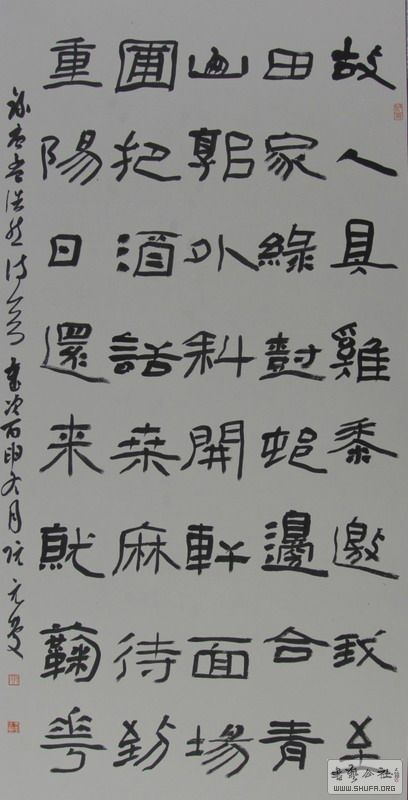 故人具雞黍邀我至
田家綠樹邨邊合青
山郭外斜開軒面場
圃把酒話桒麻待到
重陽日還来就鞠花
录唐孟浩然诗一首 岁次丙申冬月 元
书法公社
WWW.SHUFA.ORG